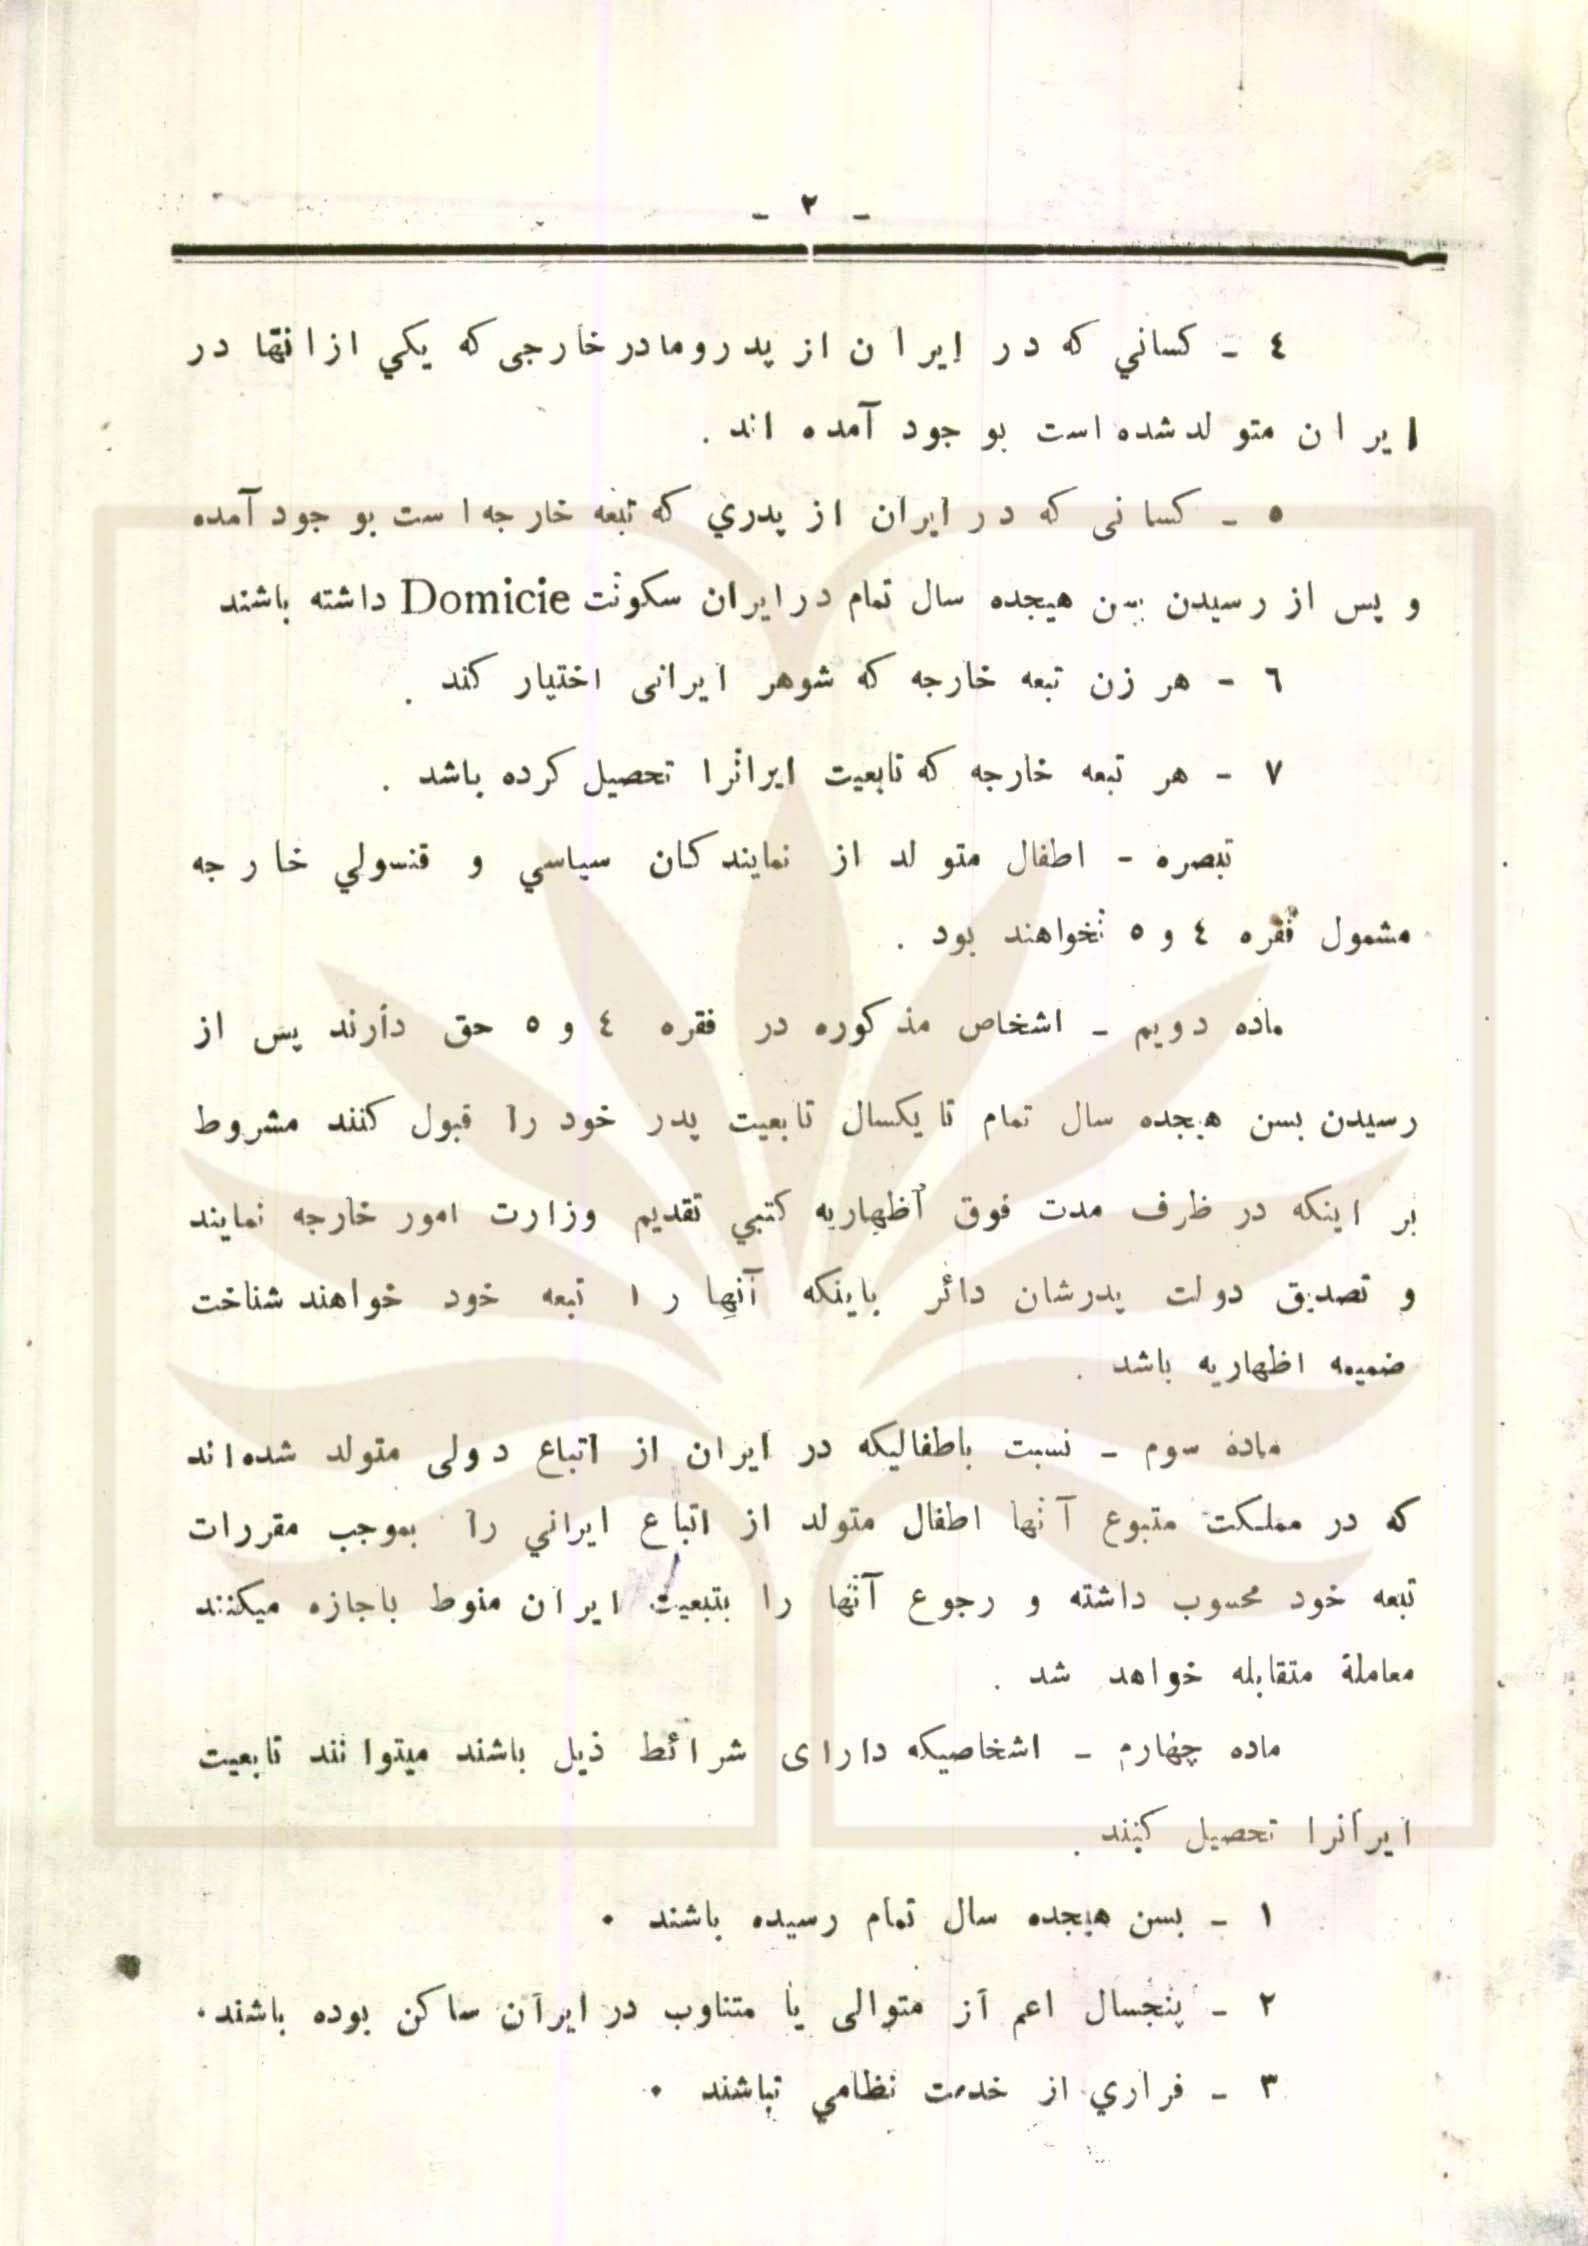 - ٢ -
٤ - كساني كه در ایران از پدر و مادر خارجی كه يكي از انها در
ایران متولد شده است بوجود آمده اند .
٥ - کسانی که در ایران از پدري که تبعه خارجه است بوجود آمده
و پس از رسیدن بسن هیجده سال تمام در ایران سکونت Domicie داشته باشند
٦ - هر زن تبعه خارجه که شوهر ایرانی اختیار کند .
٧ - هر تبعه خارجه که تابعیت ایرانرا تحصیل کرده باشد .
تبصره - اطفال متولد از نمایندکان سیاسي و قنسولي خارجه
مشمول فقره ٤ و ٥ نخواهند بود .
ماده دویم - اشخاص مذکوره در فقره ٤ و ٥ حق دارند پس از
رسیدن بسن هیجده سال تمام تا یکسال تابعیت پدر خود را قبول کنند مشروط
بر اینکه در ظرف مدت فوق اظهاریه کتبي تقدیم وزارت امور خارجه نمایند
و تصدیق دولت پدرشان دائر باینکه آنها را تبعه خود خواهند شناخت
ضمیمه اظهاریه باشد .
ماده سوم - نسبت باطفالیکه در ایران از اتباع دولی متولد شده اند
که در مملکت متبوع آنها اطفال متولد از اتباع ایراني را بموجب مقررات
تبعه خود محسوب داشته و رجوع آنها را بتبعیت ایران منوط باجازه میکنند
معاملة متقابله خواهد شد .
ماده چهارم - اشخاصیکه دارای شرائط ذیل باشند میتوانند تابعیت
ایرانرا تحصیل کنند .
١ - بسن هیجده سال تمام رسیده باشند .
٢ - پنجسال اعم از متوالی یا متناوب در ایران ساکن بوده باشند .
٣ - فراري از خدمت نظامي نباشند .